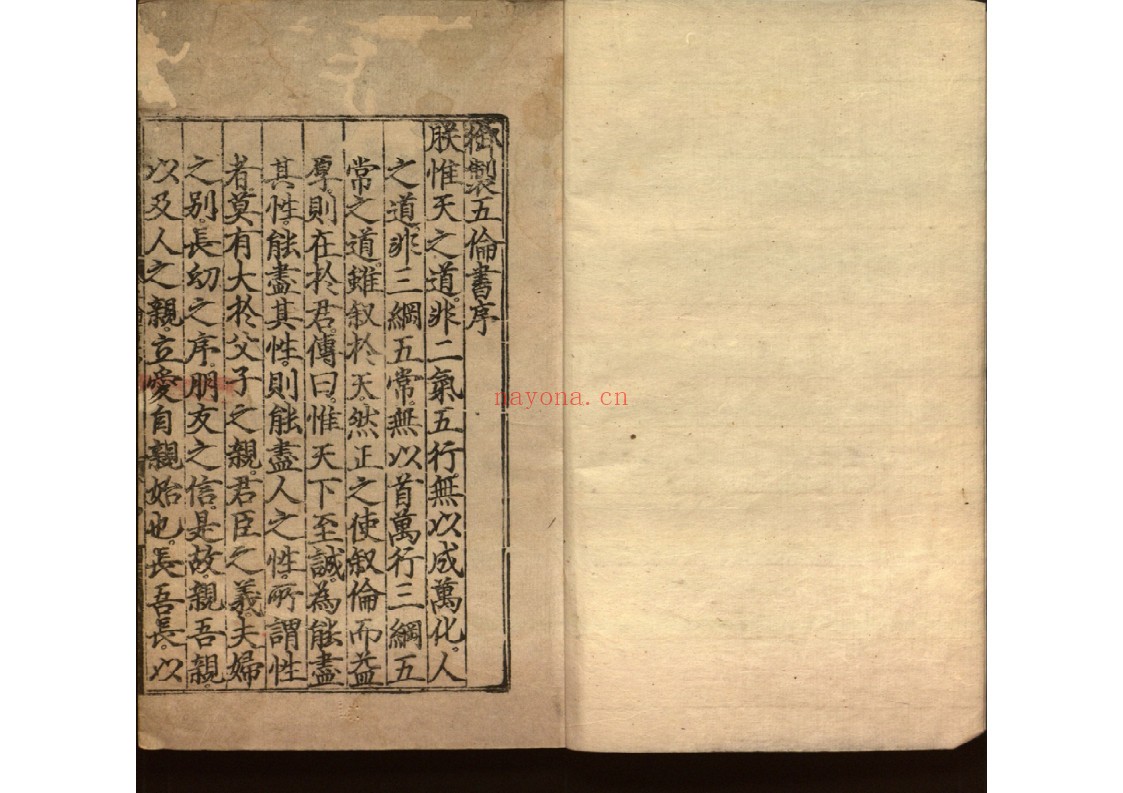 御製五倫書序
朕惟天之道。非二氣五行。無以成萬化。人
之道。非三綱五常。無以首萬行三綱五
常之道。雖叙於天。然正之使叙倫而益
厚。則在於君。傳曰。惟天下至誠。為能盡
其性。能盡其性。則能盡人之性。所謂性
者。莫有大於父子之親。君臣之義。夫婦
之別。長幼之序。朋友之信。是故。親吾親。
以及人之親。立愛自親始也。長吾長。以
nayona.cn